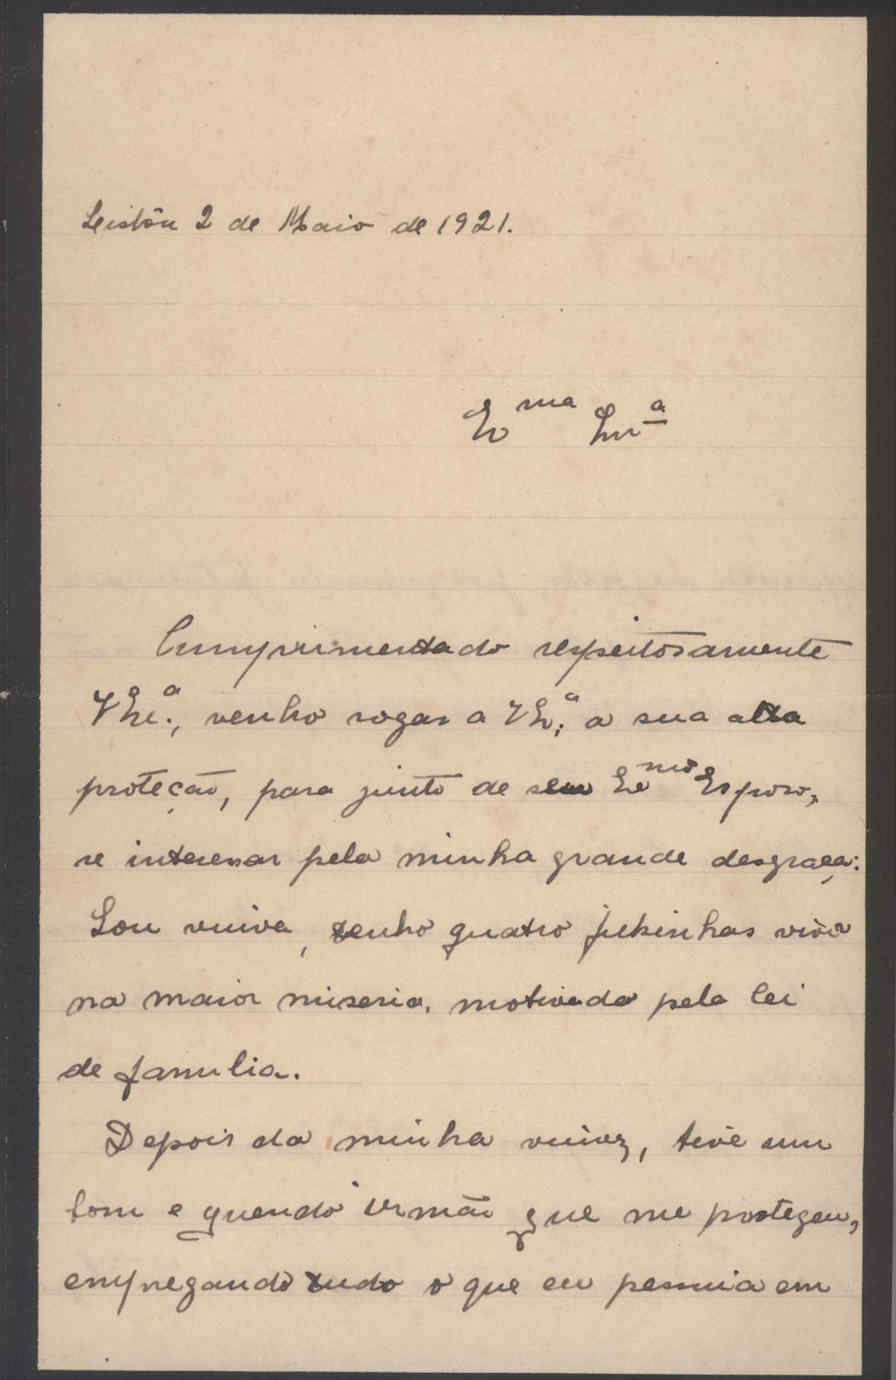 Lisbôa 2 de Maio de 1921.
Ex^ma Snr^a
Cumprimentado respeitosamente
V Ex.^a, venho rogar a V Ex.^a a sua alta
proteção, para junto de seu Ex^mo Esposo,
se interessar pela minha grande desgraça:
Sou viuva, tenho quatro filhinhas vivo
na maior miseria, motivada pela lei
de familia.
Depois da minha viuvez, tive um
bom e querido irmão que me protegeu,
empregando tudo o que eu possuia em